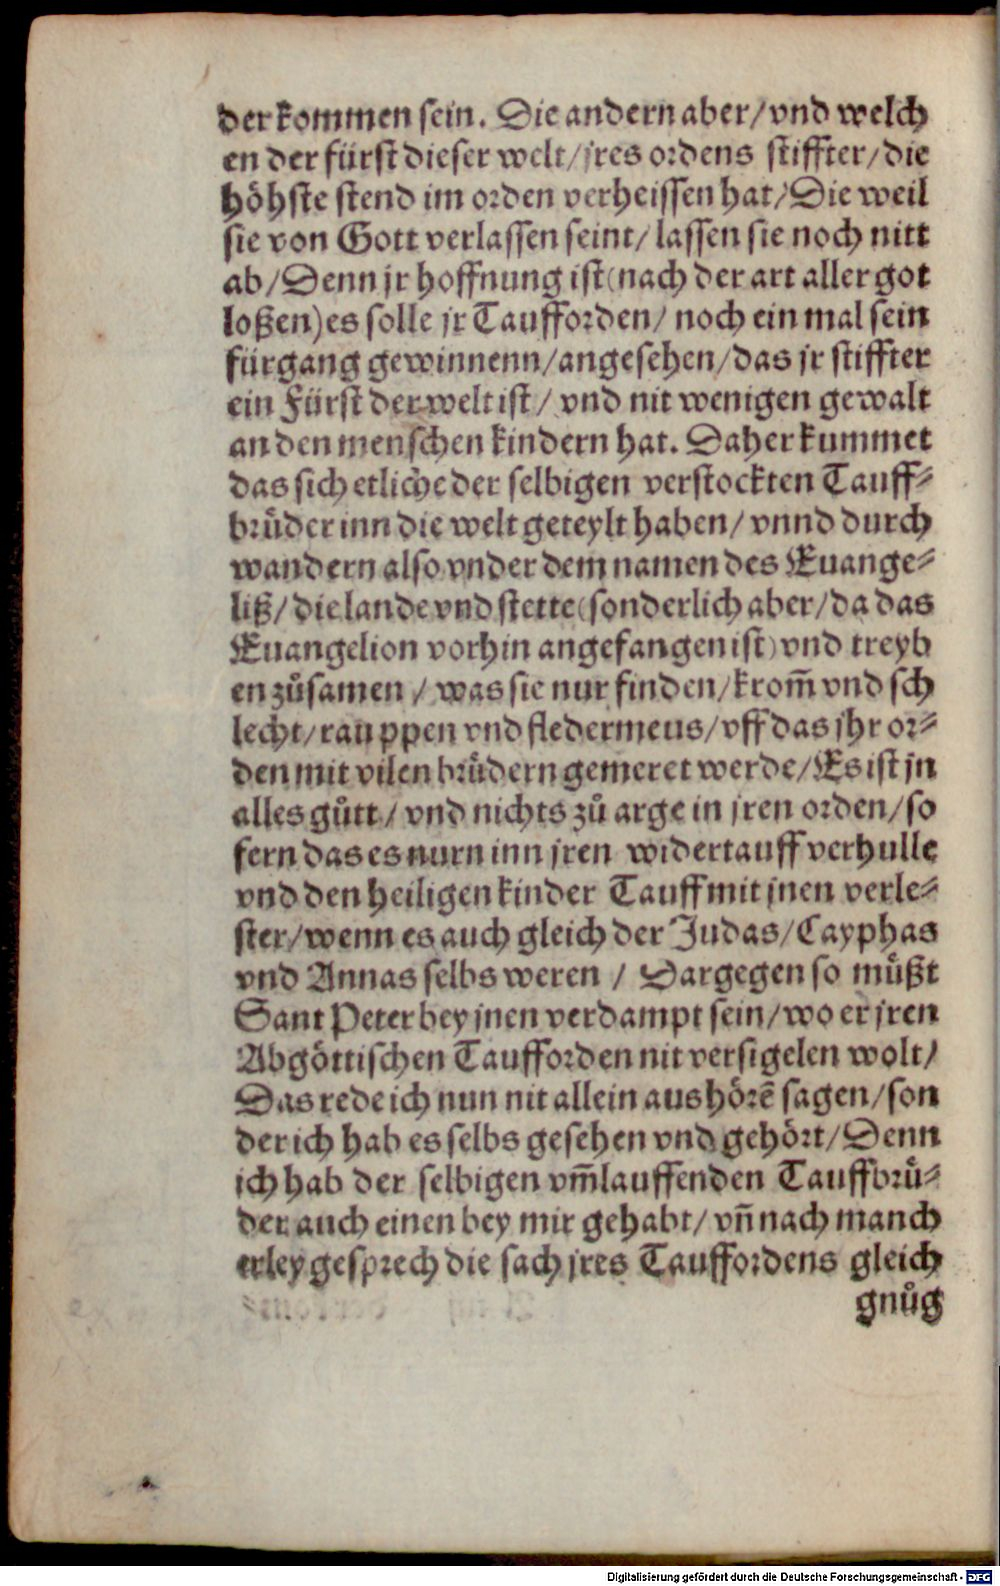 der kommen sein. Die andern aber/ vnd welch
en der fürst dieser welt/ jres ordens stiffter/ die
höhste stend im orden verheissen hat/ Die weil
sie von Gott verlassen seint/ lassen sie noch nitt
ab/ Denn jr hoffnung ist (nach der art aller got
loßen) es solle jr Taufforden/ noch ein mal sein
fürgang gewinnenn/ angesehen/ das jr stiffter
ein Fürst der welt ist/ vnd nit wenigen gewalt
an den menschen kindern hat. Daher kummet
das sich etliche der selbigen verstockten Tauff-
brüder inn die welt geteylt haben/ vnnd durch
wandern also vnder dem namen des Euange-
liß/ die lande vnd stette (sonderlich aber/ da das
Euangelion vorhin angefangen ist) vnd treyb
en zůsamen/ was sie nur finden/ krom̃ vnd sch
lecht/ rauppen vnd fledermeus/ vff das jhr or-
den mit vilen brüdern gemeret werde/ Es ist jn
alles gůtt/ vnd nichts zů arge in jren orden/ so
fern das es nurn inn jren widertauff verhulle
vnd den heiligen kinder Tauff mit jnen verle-
ster/ wenn es auch gleich der Judas/ Cayphas
vnd Annas selbs weren/ Dargegen so müßt
Sant Peter bey jnen verdampt sein/ wo er jren
Abgöttischen Taufforden nit versigelen wolt/
Das rede ich nun nit allein aus hörẽ sagen/ son
der ich hab es selbs gesehen vnd gehört/ Denn
ich hab der selbigen vm̃lauffenden Tauffbrü-
der auch einen bey mir gehabt/ vñ nach manch
erley gesprech die sach jres Tauffordens gleich
gnůg
Digitalisierung gefördert durch die Deutsche Forschungsgemeinschaft - DFG